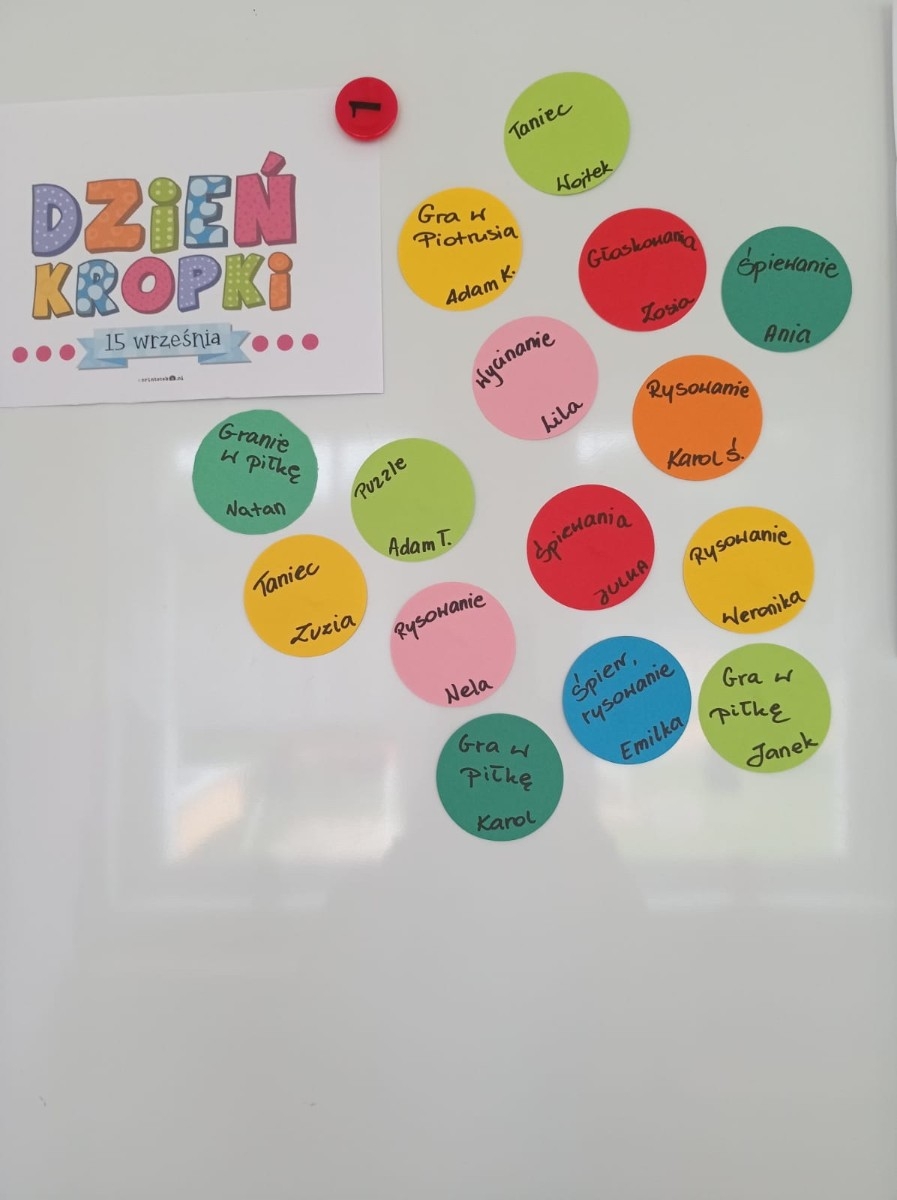 DZIEŃ
KROPKI
15 września
1
Taniec
Wojtek
Gra w
Piotrusia
Adam K.
Głaskowania
Zosia
Śpiewanie
Ania
Wycinanie
Lila
Rysowanie
Karol Ś.
Granie
w piłkę
Natan
Puzzle
Adam T.
Śpiewania
JULKA
Rysowanie
Weronika
Taniec
Zuzia
Rysowanie
Nela
Śpiew,
rysowanie
Emilka
Gra w
piłkę
Janek
Gra w
piłkę
Karol